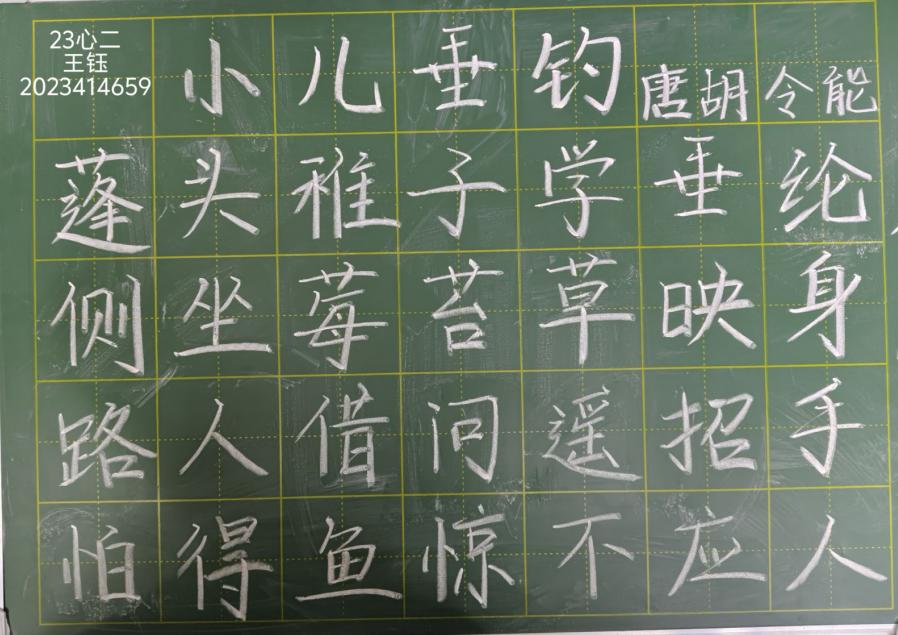 23心二
王钰
2023414659
小儿垂钓 唐胡令能
蓬头稚子学垂纶
侧坐莓苔草映身
路人借问遥招手
怕得鱼惊不应人